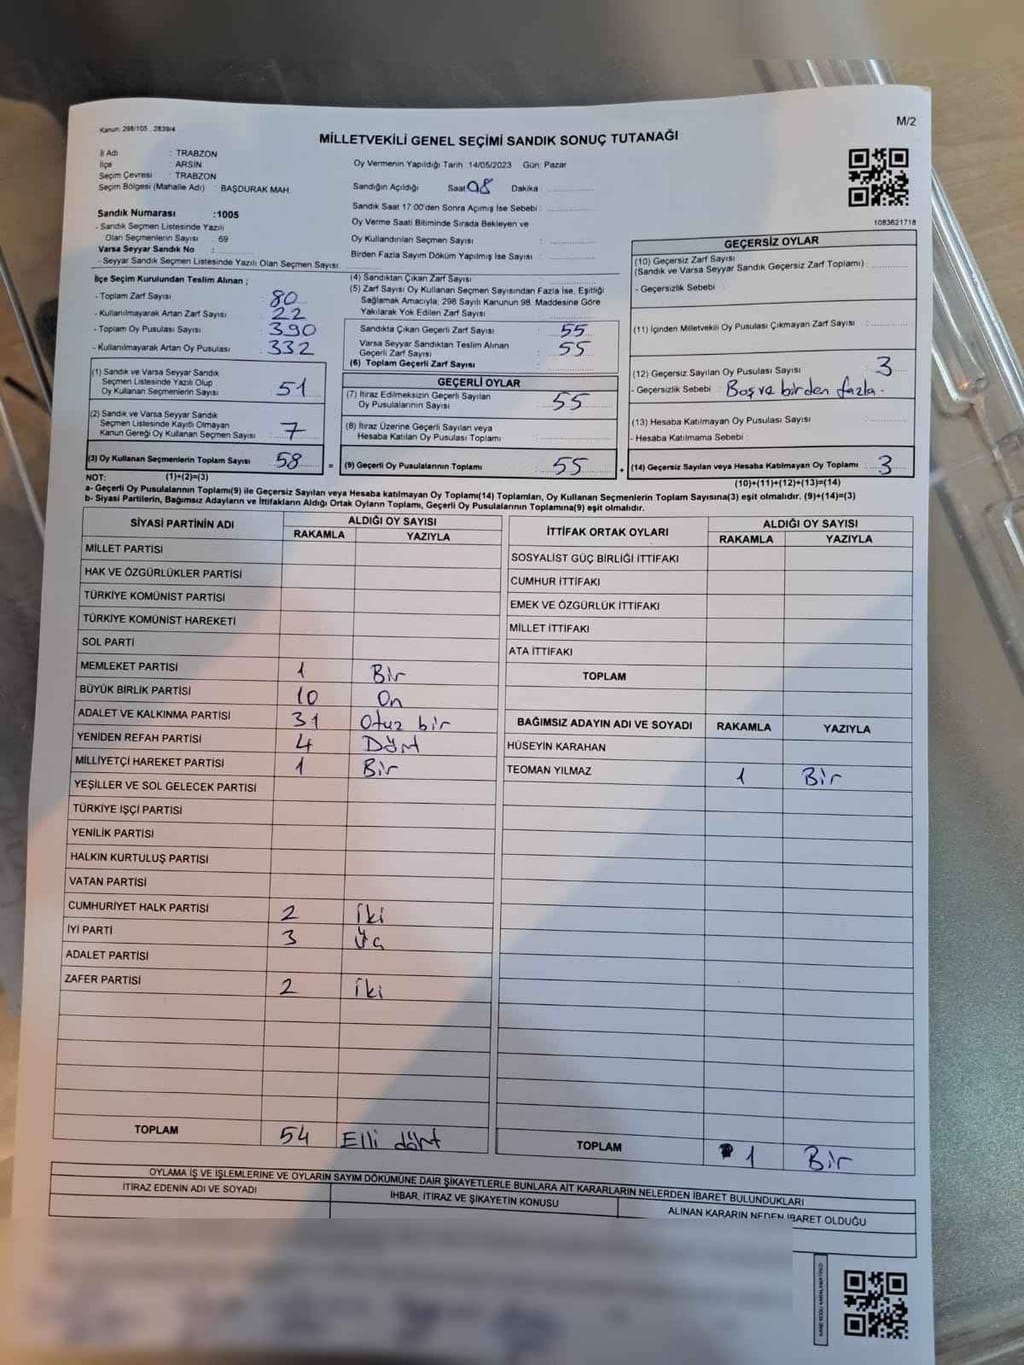 Kanun: 298/105 , 2839/4
M/2
MİLLETVEKİLİ GENEL SEÇİMİ SANDIK SONUÇ TUTANAĞI
İl Adı : TRABZON
İlçe : ARSİN
Seçim Çevresi : TRABZON
Seçim Bölgesi (Mahalle Adı) : BAŞDURAK MAH.
Oy Vermenin Yapıldığı Tarih :14/05/2023 Gün: Pazar
Sandığın Açıldığı Saat 08 Dakika
Sandık Saat 17:00'den Sonra Açımış İse Sebebi :
Oy Verme Saati Bitiminde Sırada Bekleyen ve
Oy Kullandırılan Seçmen Sayısı :
Birden Fazla Sayım Döküm Yapılmış İse Sayısı :
1083621718
Sandık Numarası :1005
- Sandık Seçmen Listesinde Yazılı
Olan Seçmenlerin Sayısı : 69
Varsa Seyyar Sandık No :
- Seyyar Sandık Seçmen Listesinde Yazılı Olan Seçmen Sayısı:
İlçe Seçim Kurulundan Teslim Alınan ;
- Toplam Zarf Sayısı : 80
- Kullanılmayarak Artan Zarf Sayısı : 22
- Toplam Oy Pusulası Sayısı : 390
- Kullanılmayarak Artan Oy Pusulası : 332
(1) Sandık ve Varsa Seyyar Sandık
Seçmen Listesinde Yazılı Olup
Oy Kullanan Seçmenlerin Sayısı : 51
(2) Sandık ve Varsa Seyyar Sandık
Seçmen Listesinde Kayıtlı Olmayan
Kanun Gereği Oy Kullanan Seçmen Sayısı : 7
(3) Oy Kullanan Seçmenlerin Toplam Sayısı : 58
(1)+(2)=(3)
(4) Sandıktan Çıkan Zarf Sayısı :
(5) Zarf Sayısı Oy Kullanan Seçmen Sayısından Fazla İse, Eşitliği
Sağlamak Amacıyla, 298 Sayılı Kanunun 98. Maddesine Göre
Yakılarak Yok Edilen Zarf Sayısı :
Sandıkta Çıkan Geçerli Zarf Sayısı : 55
Varsa Seyyar Sandıktan Teslim Alınan
Geçerli Zarf Sayısı : 55
(6) Toplam Geçerli Zarf Sayısı :
GEÇERLİ OYLAR
(7) İtiraz Edilmeksizin Geçerli Sayılan
Oy Pusulalarının Sayısı : 55
(8) İtiraz Üzerine Geçerli Sayılan veya
Hesaba Katılan Oy Pusulası Toplamı :
= (9) Geçerli Oy Pusulalarının Toplamı : 55
GEÇERSİZ OYLAR
(10) Geçersiz Zarf Sayısı
(Sandık ve Varsa Seyyar Sandık Geçersiz Zarf Toplamı) :
- Geçersizlik Sebebi :
(11) İçinden Milletvekili Oy Pusulası Çıkmayan Zarf Sayısı :
(12) Geçersiz Sayılan Oy Pusulası Sayısı : 3
- Geçersizlik Sebebi : Boş ve birden fazla.
(13) Hesaba Katılmayan Oy Pusulası Sayısı :
- Hesaba Katılmama Sebebi :
+ (14) Geçersiz Sayılan veya Hesaba Katılmayan Oy Toplamı : 3
(10)+(11)+(12)+(13)=(14)
NOT:
a- Geçerli Oy Pusulalarının Toplamı(9) ile Geçersiz Sayılan veya Hesaba katılmayan Oy Toplamı(14) Toplamları, Oy Kullanan Seçmenlerin Toplam Sayısına(3) eşit olmalıdır. (9)+(14)=(3)
b- Siyasi Partilerin, Bağımsız Adayların ve İttifakların Aldığı Ortak Oyların Toplamı, Geçerli Oy Pusulalarının Toplamına(9) eşit olmalıdır.
SİYASİ PARTİNİN ADI ALDIĞI OY SAYISI
RAKAMLA YAZIYLA
MİLLET PARTİSİ
HAK VE ÖZGÜRLÜKLER PARTİSİ
TÜRKİYE KOMÜNİST PARTİSİ
TÜRKİYE KOMÜNİST HAREKETİ
SOL PARTİ
MEMLEKET PARTİSİ 1 Bir
BÜYÜK BİRLİK PARTİSİ 10 On
ADALET VE KALKINMA PARTİSİ 31 Otuz bir
YENİDEN REFAH PARTİSİ 4 Dört
MİLLİYETÇİ HAREKET PARTİSİ 1 Bir
YEŞİLLER VE SOL GELECEK PARTİSİ
TÜRKİYE İŞÇİ PARTİSİ
YENİLİK PARTİSİ
HALKIN KURTULUŞ PARTİSİ
VATAN PARTİSİ
CUMHURİYET HALK PARTİSİ 2 İki
İYİ PARTİ 3 Üç
ADALET PARTİSİ
ZAFER PARTİSİ 2 İki
TOPLAM 54 Elli dört
İTTİFAK ORTAK OYLARI ALDIĞI OY SAYISI
RAKAMLA YAZIYLA
SOSYALİST GÜÇ BİRLİĞİ İTTİFAKI
CUMHUR İTTİFAKI
EMEK VE ÖZGÜRLÜK İTTİFAKI
MİLLET İTTİFAKI
ATA İTTİFAKI
TOPLAM
BAĞIMSIZ ADAYIN ADI VE SOYADI RAKAMLA YAZIYLA
HÜSEYİN KARAHAN
TEOMAN YILMAZ 1 Bir
TOPLAM 1 Bir
OYLAMA İŞ VE İŞLEMLERİNE VE OYLARIN SAYIM DÖKÜMÜNE DAİR ŞİKAYETLERLE BUNLARA AİT KARARLARIN NELERDEN İBARET BULUNDUKLARI
İTİRAZ EDENİN ADI VE SOYADI İHBAR, İTİRAZ VE ŞİKAYETİN KONUSU ALINAN KARARIN NEDEN İBARET OLDUĞU